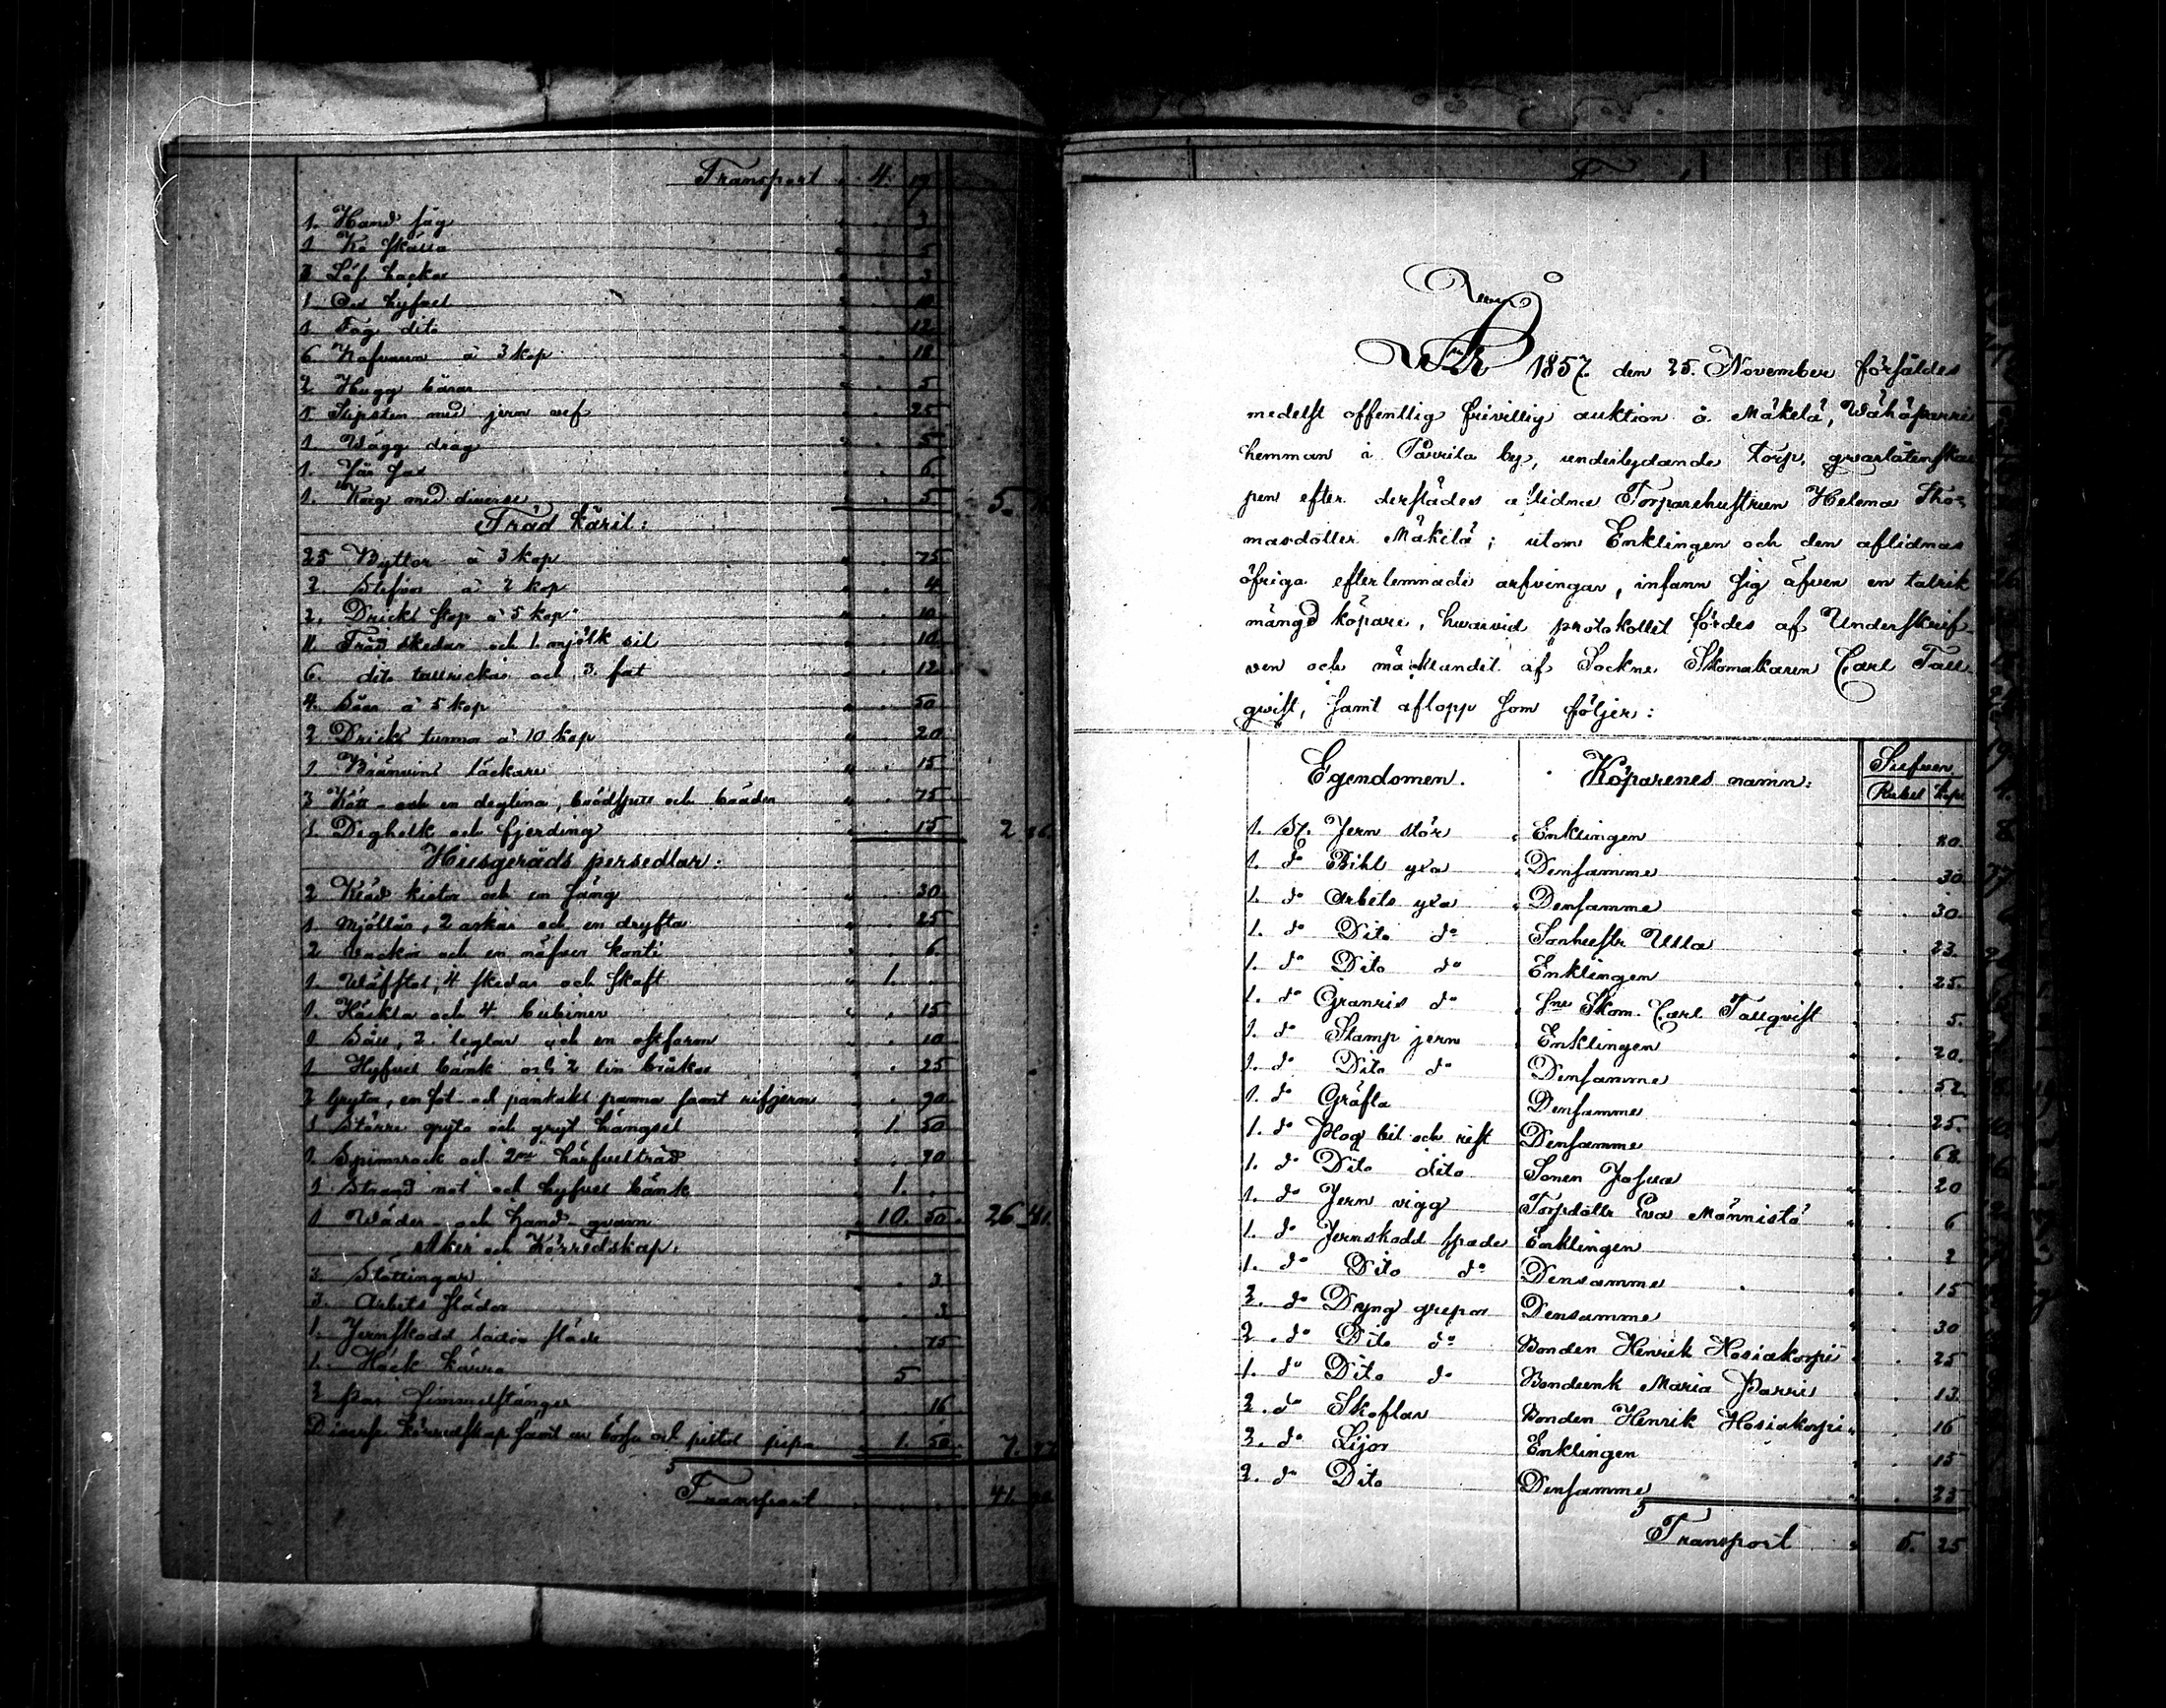 Transport 4. 19
1. Hand såg 3
1. Ko skälla 5
3 Löf hackor 3
1. Ox hyfvel 10
1. Fog dito 12
6. Nafvarar à 3 kop 18
2. Hugg bärar 5
1. Slipsten med jern vef 25
1. Wägg drag 5
1. 6
1. Korg med diverse 5 5.
Träd käril:
25 Byttor à 3 kop 75
2. Stäfvor à 2 kop 4
2. Dricks stop à 5 kop 10
11. Träd skedar och 1. mjölk sil 10
6. dito tallrickar och 3. fat 12
4. Såar à 5 kop 50
2 Dricks tunnor à 10 kop 20
1. Bränvins läckare 15
3 Kött- och en deglina, brödspett och bräder 75
1. Degholk och fjerding 15 2
Husgeråds persedlar:
2 Kläd kistor och en säng 30
1 Mjöllår, 2 askar och en dryfta 25
2 Vackor och en näfver konti 6.
1. Wäfstol, 4 skedar och skaft 1.
1. Häckla och 4 bubiner 15
1 Såll, 2. teglar och en ostform 10
1 Hyfvel bänk och 2 lin bråkor 25
3 Gryta, en fot- och pankaks panna samt rifjern 90
1 Större gryta och gryt hängsel 1. 50
1. Spinnrock och 2ne härfvelträd 90
1 Strand not och hyfvel bänk 1.
1 Wäder- och hand-qvarn 10. 50 26 41.
Åker och Körredskap:
3. Slättingar 3
3. Arbets slädor 3
1. Jernskodd lador släde 75
1. Häck kärra 5
2 par Himmelstänger 16
Diverse körredskap samt en börsa och pistol pipa 1. 50 7.
Transport 41.
År 1857. den 25. November försåldes
medelst offentlig frivillig auktion å Mäkelä, Wähäparri
hemman i Pavvila by, underlydande torp, qvarlåtenska-
pen efter derstädes aflidna Torparehustrun Helena Tho-
masdotter Mäkelä; utom Enklingen och den aflidnas
öfriga efterlemnade arfvingar, infann sig äfven en talrik
mängd köpare, hvarvid protokollet fördes af Underskrif-
ven och mäklandet af Sockne Skomakaren Carl Tall-
qvist, samt aflopp som följer:
Egendomen. Köparenes namn: Silfver
Rubel Kop.
1. St. Jern stör Enklingen 80.
1. do Bihl yxa Densamme 30
1. do Arbets yxa Densamme 30.
1. do Dito do Sonhustr Ulla 23.
1. do Dito do Enklingen 25.
1. do Granris do Sne Skom. Carl Tallqvist 5.
1. do Stamp jern Enklingen 20.
1. do Dito do Densamme 52
1. do Gräfta Densamme 25.
1. do Plog bil och rist Densamme 68.
1. do Dito dito Sonen Josua 20
1. do Jern vigg Torpdottr Eva Männistö 6
1. do Jernskodd spade Enklingen 2
1. do Dito do Densamme 15
3. do Dyng grepar Densamme 30
2. do Dito do Bonden Henrik Hosiakorpi 25
1. do Dito do Bondeenk Maria Parri 13.
2. do Skoflar Bonden Henrik Hosiakorpi 16
3. do Lijor Enklingen 15
2. do Dito Densamme 25
Transport 5. 25